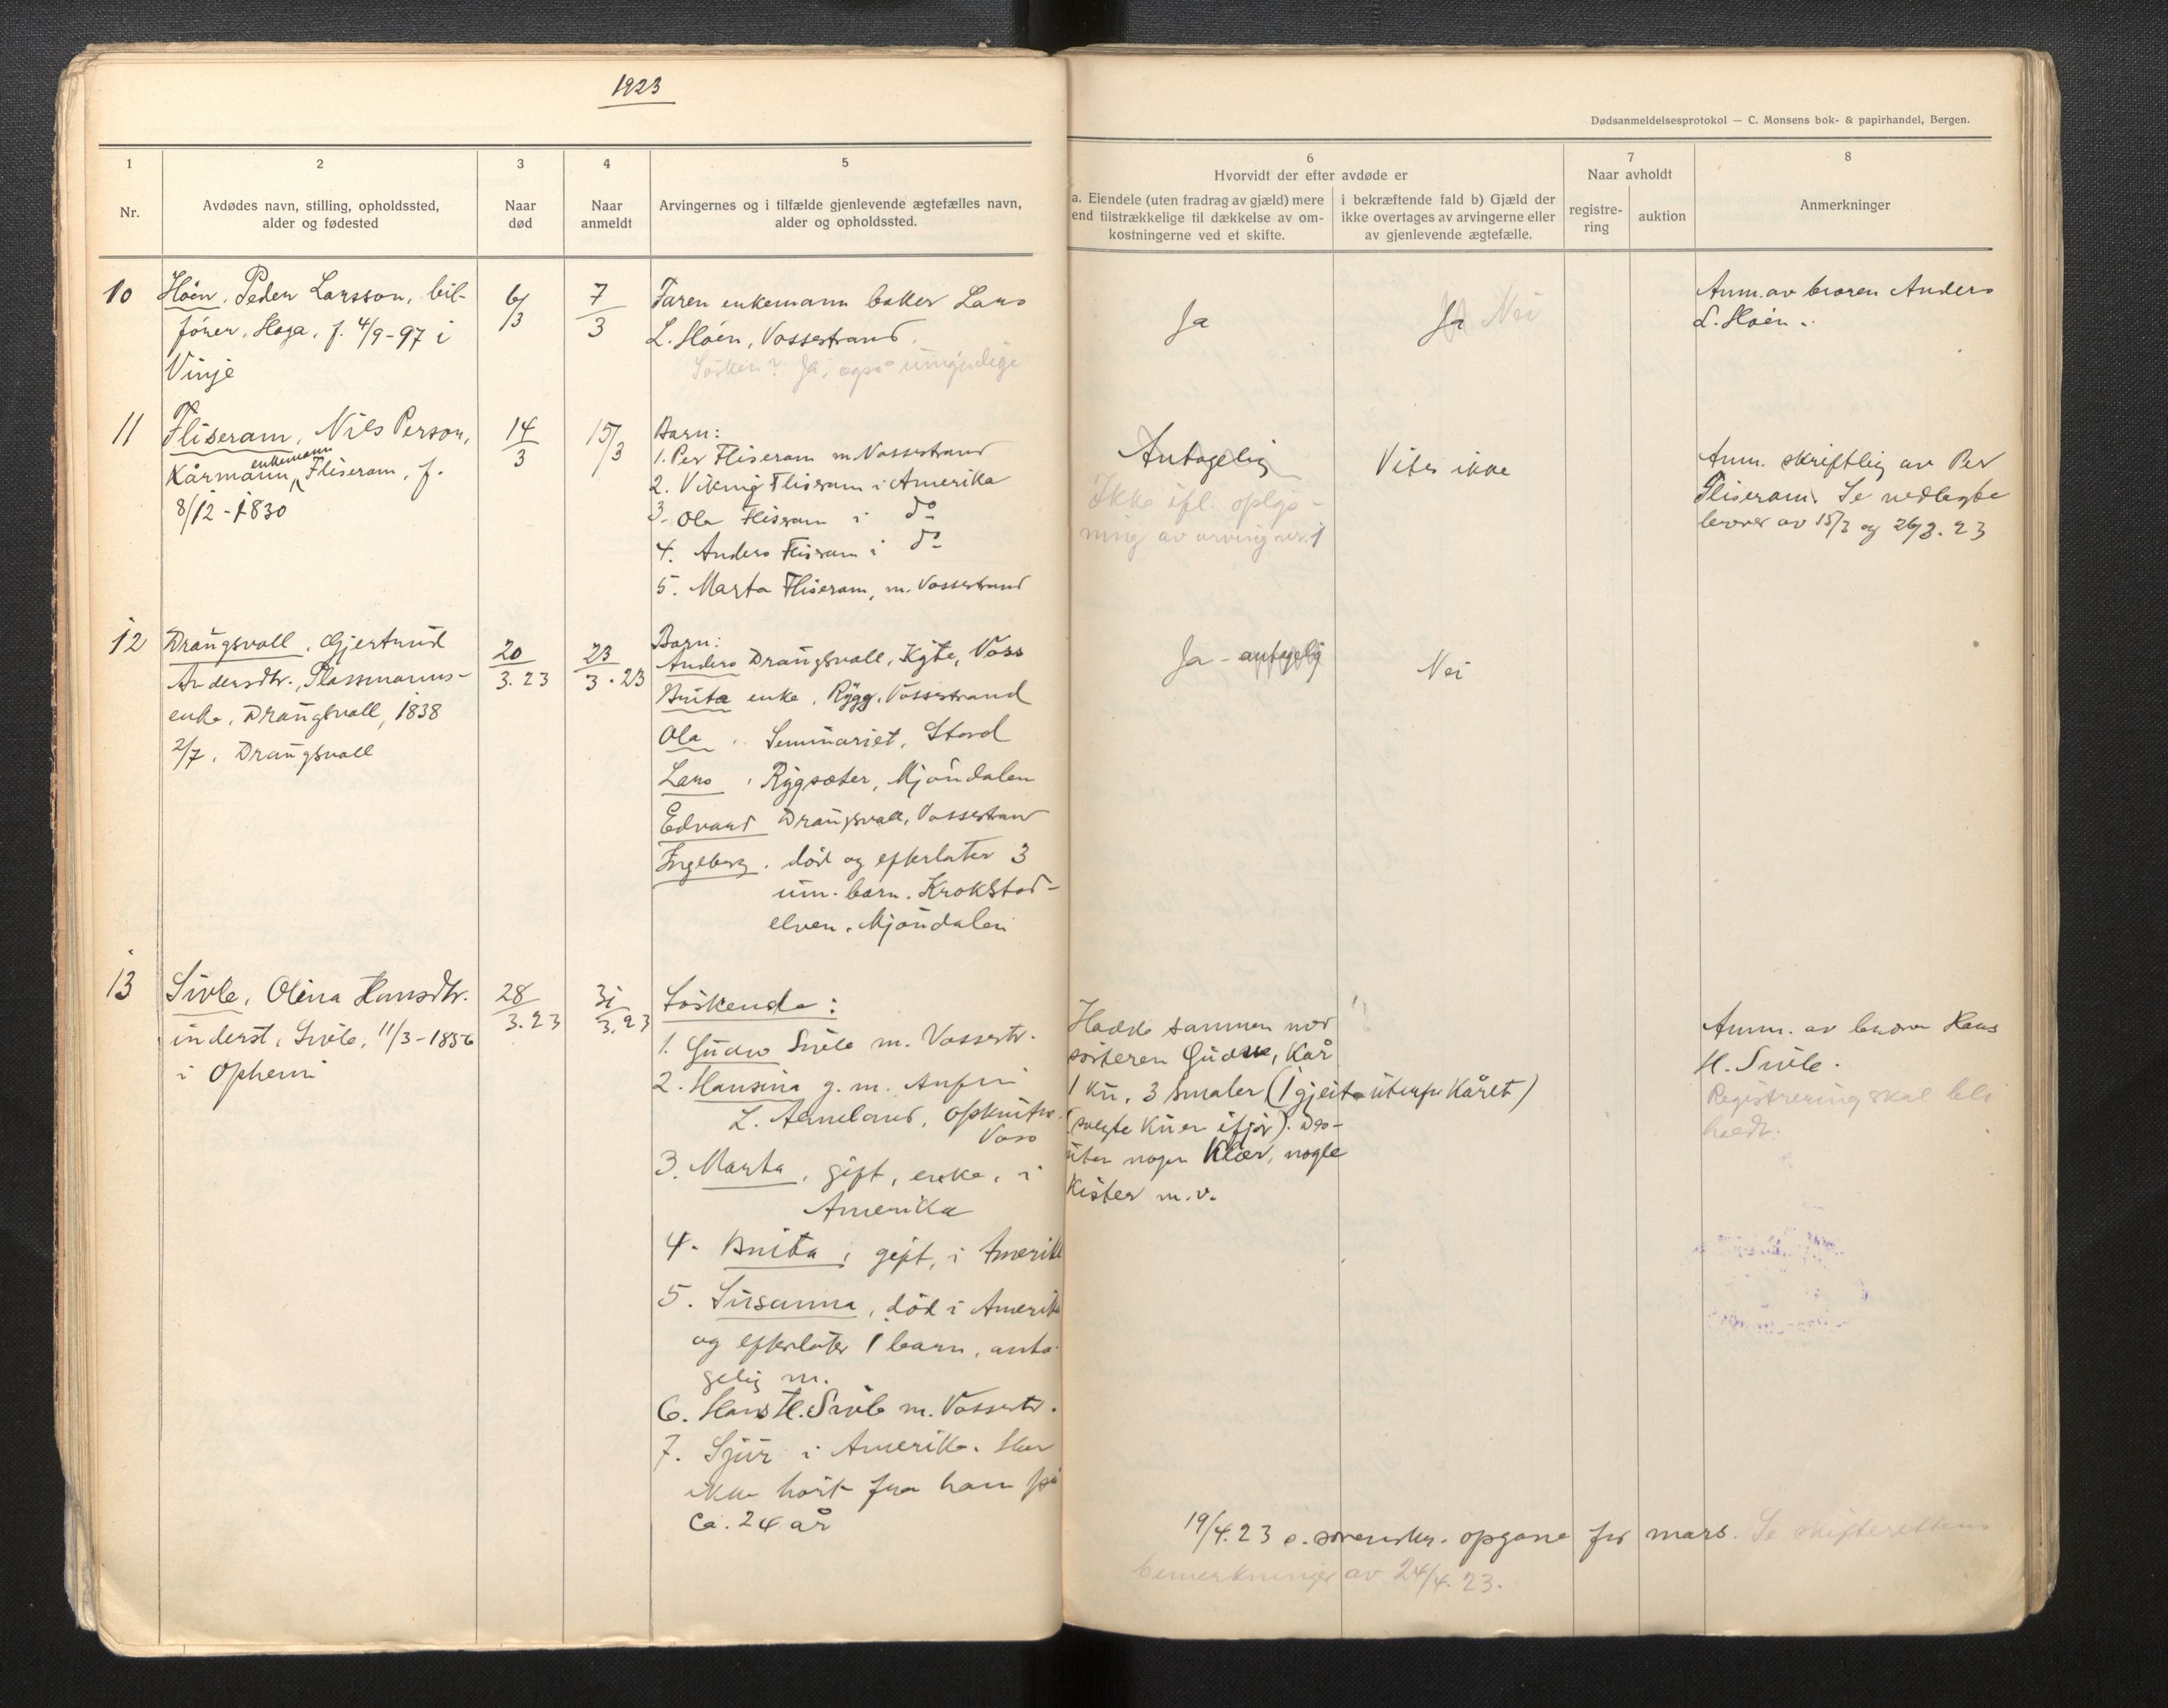 1923
Dødsanmeldelsesprotokol — C. Monsens bok- & papirhandel, Bergen.
1
2
3
4
5
6
7
8
Nr.
Avdødes navn, stilling, opholdssted,
alder og fødested
Naar
død
Naar
anmeldt
Arvingernes og i tilfælde gjenlevende ægtefælles navn,
alder og opholdssted.
Hvorvidt der efter avdøde er
a. Eiendele (uten fradrag av gjæld) mere
end tilstrækkelige til dækkelse av om-
kostningerne ved et skifte.
i bekræftende fald b) Gjæld der
ikke overtages av arvingerne eller
av gjenlevende ægtefælle.
Naar avholdt
registre-
ring
auktion
Anmerkninger
10
Höen, Peder Larsson, bil-
förer, Haga, f. 4/9-97 i
Vinje
6/3
7/3
Faren enkemann baker Lars
L. Höen, Vossestrand.
Sösken? Ja, også umyndige
Ja
Ja Nei
Anm. av broren Anders
L. Höen.
11
Fliseram, Nils Person,
Kårmann, enkemann Fliseram, f.
8/12-1830
14/3
15/3
Barn:
1. Per Fliseram m. Vossestrand
2. Viking Fliseram i Amerika
3. Ola Fliseram i do
4. Anders Fliseram i do
5. Marta Fliseram, m. Vossestrand
Antagelig
Ikke ifl. oplys-
ning av arving nr. 1
Vites ikke
Anm. skriftlig av Per
Fliseram. Se vedlagte
brever av 15/3 og 26/3. 23
12
Drangsvoll, Gjertrud
Andersdtr., Plassmanns-
enke, Drangsvoll, 1838
2/7, Drangsvoll
20/3.23
23/3.23
Barn:
Anders Drangsvoll, Kyte, Voss
Brita enke, Rygg, Vossestrand
Ola, Seminariet, Stord
Lars, Rygsæter, Mjöndalen
Edvard Drangsvoll, Vossestrand
Ingeborg, död og efterlater 3
um. barn. Krokstad-
elven, Mjöndalen
Ja - antagelig
Nei
13
Sivle, Olina Hansdtr.
inderst, Sivle, 11/3-1856
i Opheim
28/3.23
31/3.23
Söskende:
1. Gudve Sivle m. Vossestr.
2. Hansina g. m.
L. Arneland,
Voss
3. Marta, gift, enke, i
Amerika
4. Brita, gift, i Amerika
5. Susanna, död i Amerika
og efterlater 1 barn, anta-
gelig m.
6. Hans H. Sivle m. Vossestr.
7. Sjur i Amerika. Har
ikke hört fra ham på
ca. 24 år
Hadde sammen med
sösteren Gudve, Kår
1 ku, 3 smaler (1 gjeit utenfor Kåret)
(solgte kuen ifjor). Des-
uten nogen klær, nogle
kister m.v.
Anm. av broren Hans
H. Sivle.
Registrering skal bli
holdt.
19/4.23 s. sorenskr. opgave for mars. Se skifterettens
bemerkninger av 24/4. 23.